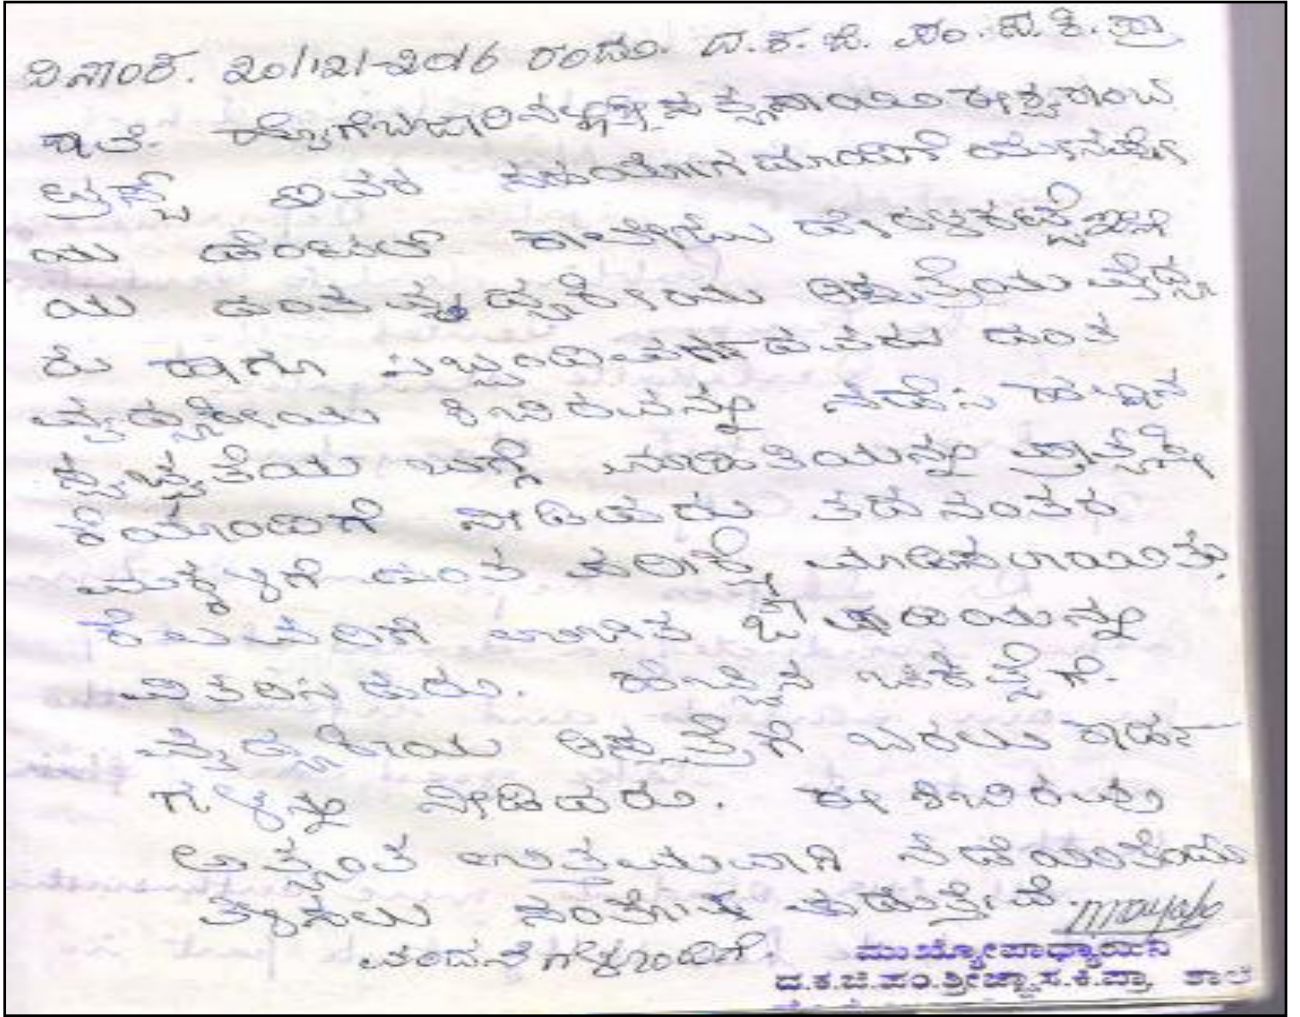 ದಿನಾಂಕ. 20/12/2016 ರಂದು. ದ.ಕ.ಜಿ. ಪಂ.ಸ.ಕಿ.ಪ್ರಾ
ಶಾಲೆ. ಸತ್ಯಸಾಯಿ
ಟ್ರಸ್ಟ್ ಇವರ ಸಹಯೋಗದೊಂದಿಗೆ ಯೇನೆಪೋ
ಯ ಡೆಂಟಲ್ ಕಾಲೇಜು ದೇರಳಕಟ್ಟೆ ಇಲ್ಲಿ
ಯ ದಂತ ವೈದ್ಯಕೀಯ ಆಸ್ಪತ್ರೆಯ ವೈದ್ಯ
ರು ಹಾಗೂ ಸಿಬ್ಬಂದಿ ವರ್ಗದವರು ದಂತ
ವೈದ್ಯಕೀಯ ಶಿಬಿರವನ್ನು ನಡೆಸಿ ಹಲ್ಲಿನ
ಸ್ವಚ್ಛತೆಯ ಬಗ್ಗೆ ಮಾಹಿತಿಯನ್ನು ಪ್ರಾತ್ಯಕ್ಷಿ
ಕೆಯೊಂದಿಗೆ ನೀಡಿದರು ತದನಂತರ
ಮಕ್ಕಳಿಗೆ ದಂತ ಪರೀಕ್ಷೆ ಮಾಡಿಸಲಾಯಿತು.
ಕೆಲವರಿಗೆ ಉಚಿತ ಔಷಧಿಯನ್ನು
ವಿತರಿಸಿದರು. ಹೆಚ್ಚಿನ ಚಿಕಿತ್ಸೆಗೆ
ವೈದ್ಯಕೀಯ ಆಸ್ಪತ್ರೆಗೆ ಬರಲು ಕಾರ್ಡ್
ಗಳನ್ನು ನೀಡಿದರು. ಈ ಶಿಬಿರವು
ಅತ್ಯಂತ ಉತ್ತಮವಾಗಿ ನಡೆಯಿತೆಂದು
ತಿಳಿಸಲು ಸಂತೋಷ ಪಡುತ್ತೇವೆ.
ವಂದನೆಗಳೊಂದಿಗೆ.
ಮುಖ್ಯೋಪಾಧ್ಯಾಯಿನಿ
ದ.ಕ.ಜಿ.ಪಂ. ಸ.ಕಿ.ಪ್ರಾ ಶಾಲೆ